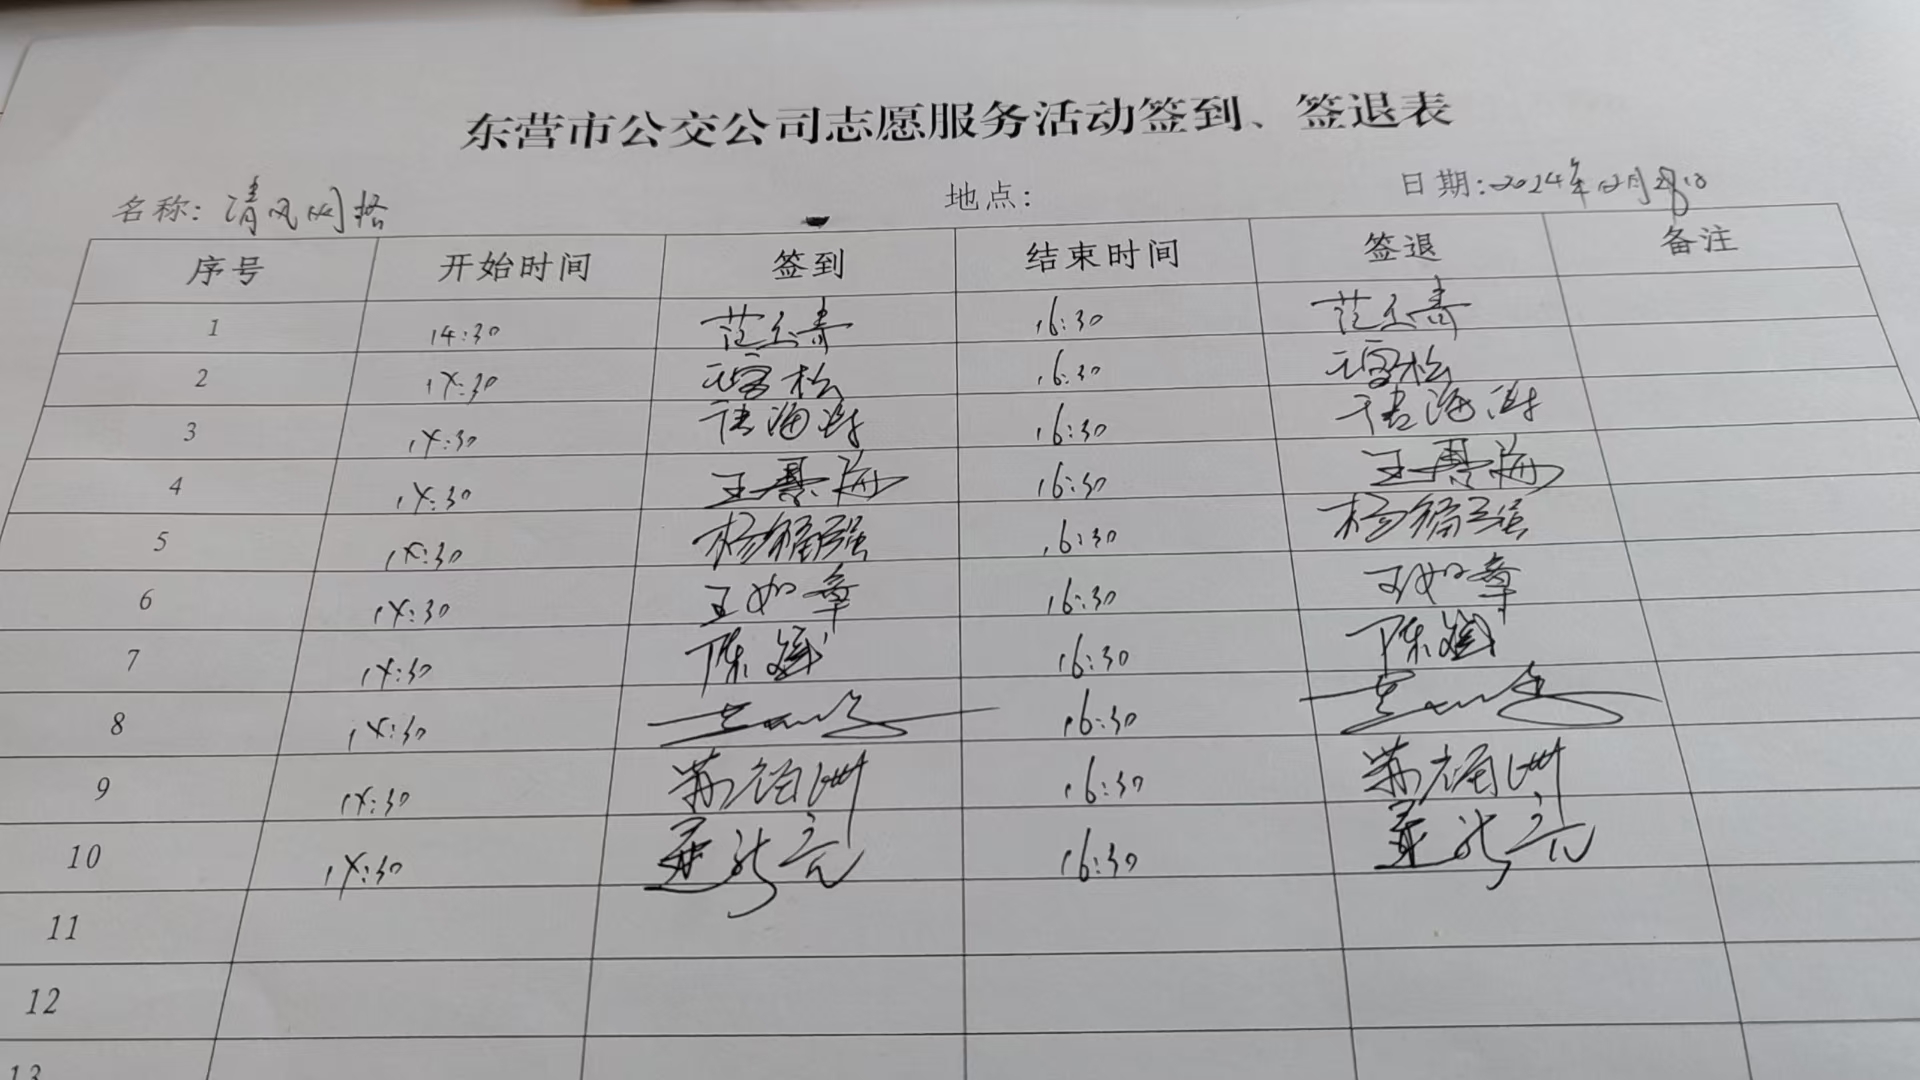 东营市公交公司志愿服务活动签到、签退表
名称: 清风网格 地点: 日期: 2024年12月
序号 开始时间 签到 结束时间 签退 备注
1 14:30 范玉青 16:30 范玉青
2 14:30 松 16:30 松
3 14:30 海涛 16:30 海涛
4 14:30 王海 16:30 王海
5 14:30 杨福强 16:30 杨福强
6 14:30 王如章 16:30 王如章
7 14:30 陈斌 16:30 陈斌
8 14:30 16:30
9 14:30 苏洲 16:30 苏洲
10 14:30 亮 16:30 亮
11
12
13